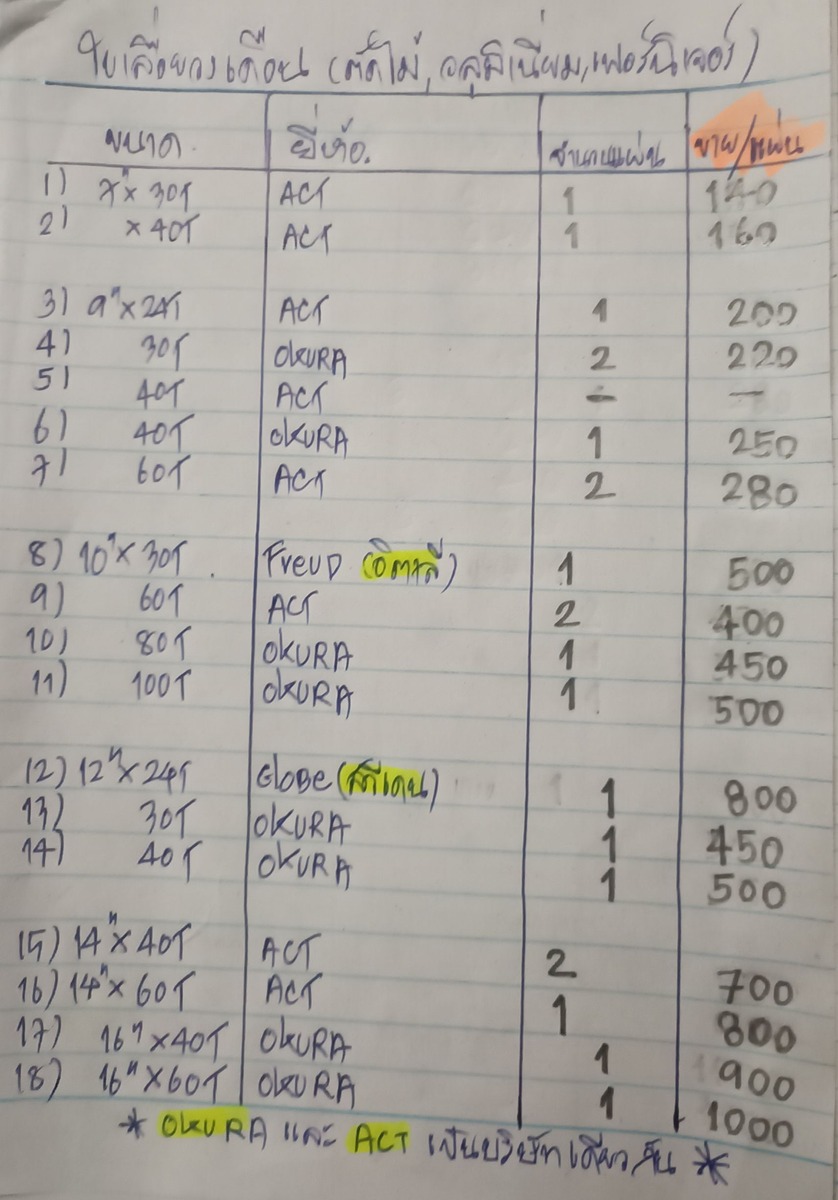 ใบเลื่อยวงเดือน (ตัดไม้, อลูมิเนี่ยม, เฟอร์นิเจอร์)
ขนาด ยี่ห้อ. จำนวนแผ่น ขาย/แผ่น
1) 7" x 30T ACT 1 140
2) x 40T ACT 1 160
3) 9" x 24T ACT 1 200
4) 30T OKURA 2 220
5) 40T ACT - -
6) 40T OKURA 1 250
7) 60T ACT 2 280
8) 10" x 30T Freud (อิตาลี) 1 500
9) 60T ACT 2 400
10) 80T OKURA 1 450
11) 100T OKURA 1 500
12) 12" x 24T Globe (สวีเดน) 1 800
13) 30T OKURA 1 450
14) 40T OKURA 1 500
15) 14" x 40T ACT 2 700
16) 14" x 60T ACT 1 800
17) 16" x 40T OKURA 1 900
18) 16" x 60T OKURA 1 1000
* OKURA และ ACT เป็นบริษัทเดียวกัน *